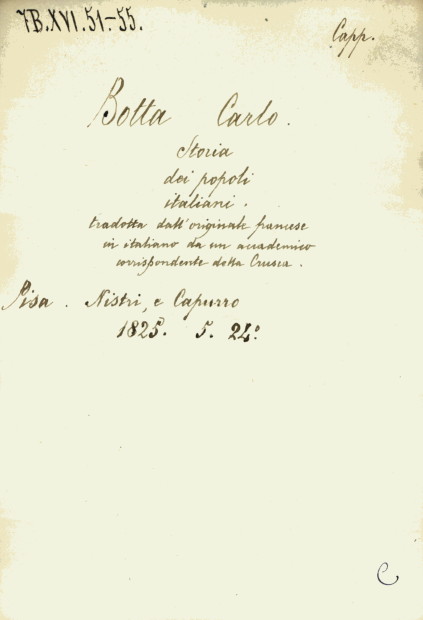 7B.XVI.51-55.
Capp.
Botta Carlo.
Storia
dei popoli
italiani.
tradotta dall'originale francese
in italiano da un accademico
corrispondente della Crusca.
Pisa. Nistri, e Capurro
1825. 5. 24.°
C